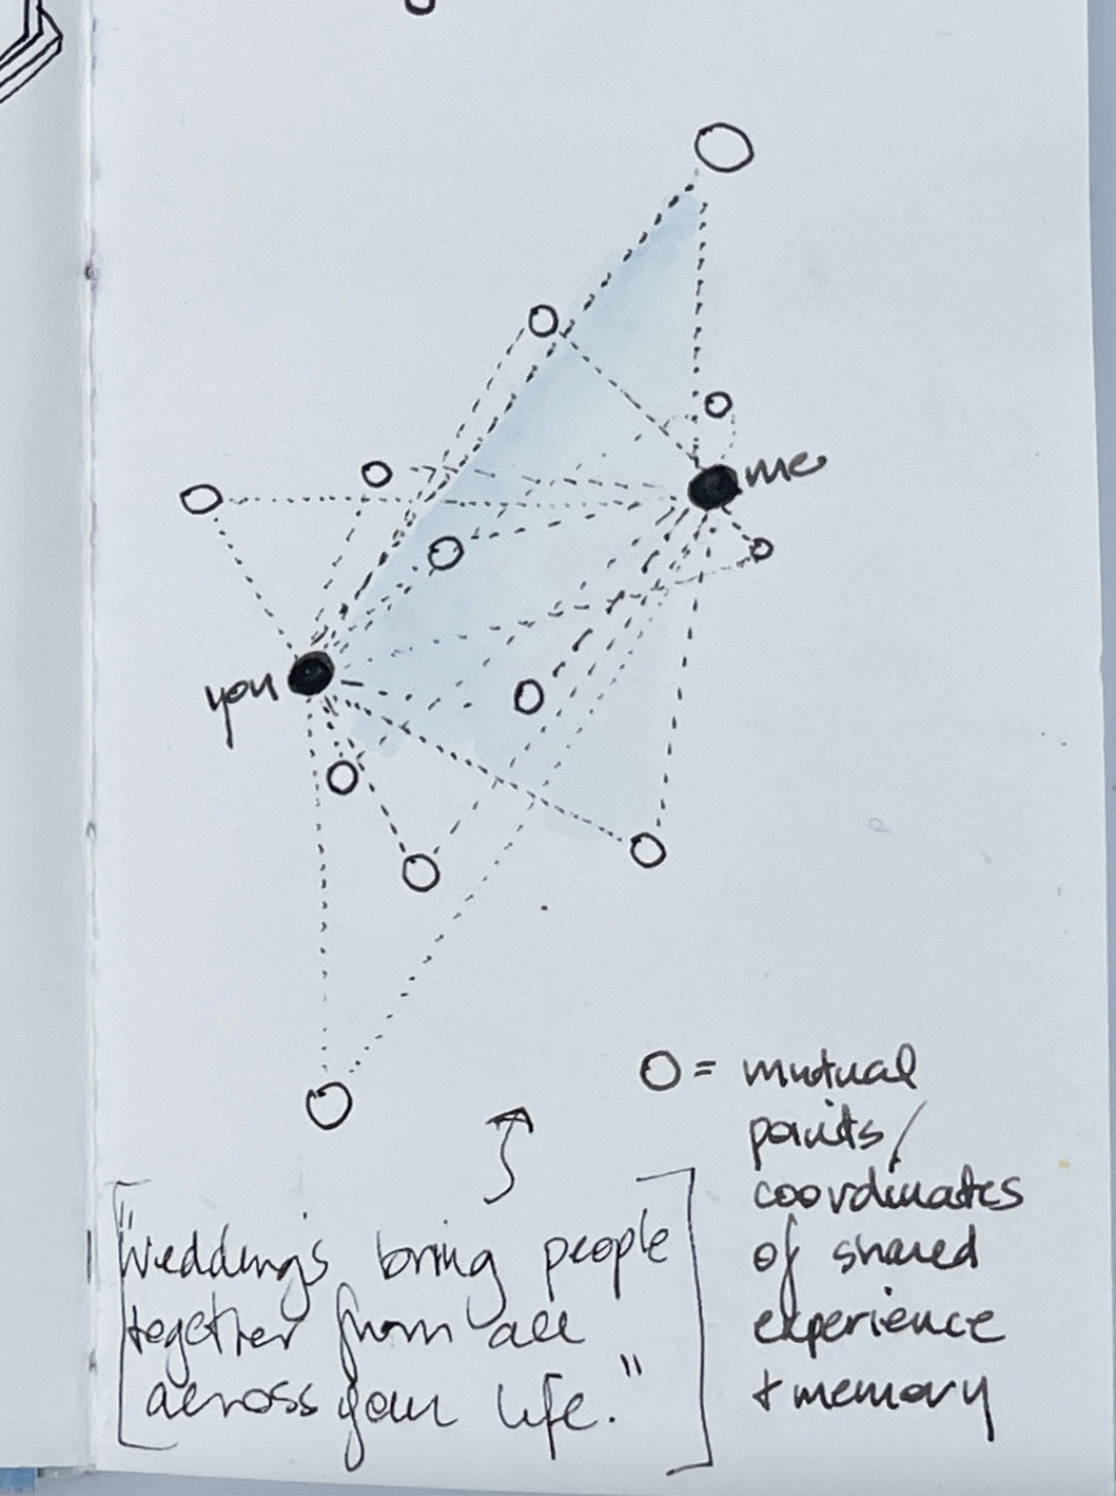 me
you
O = mutual
points/
coordinates
of shared
experience
+ memory
["Weddings bring people
together from all
across your life."]